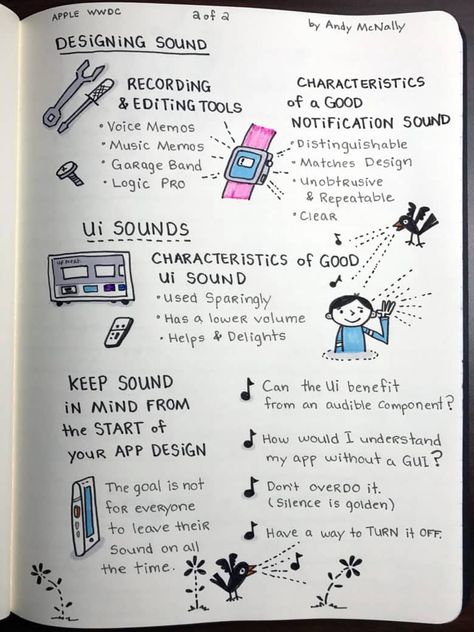 APPLE WWDC
2 of 2
by Andy McNally
DESIGNING SOUND
RECORDING
& EDITING TOOLS
• Voice Memos
• Music Memos
• Garage Band
• Logic PRO
CHARACTERISTICS
of a GOOD
NOTIFICATION SOUND
• Distinguishable
• Matches Design
• Unobtrusive
& Repeatable
• Clear
Ui SOUNDS
CHARACTERISTICS of GOOD
Ui SOUND
• Used Sparingly
• Has a lower volume
• Helps & Delights
KEEP SOUND
iN MiND FROM
the START of
YOUR APP DESIGN
The goal is not
for everyone
to leave their
sound on all
the time.
Can the Ui benefit
from an audible component?
How would I understand
my app without a GUI?
Don't overDO it.
(Silence is golden)
Have a way to TURN it OFF.